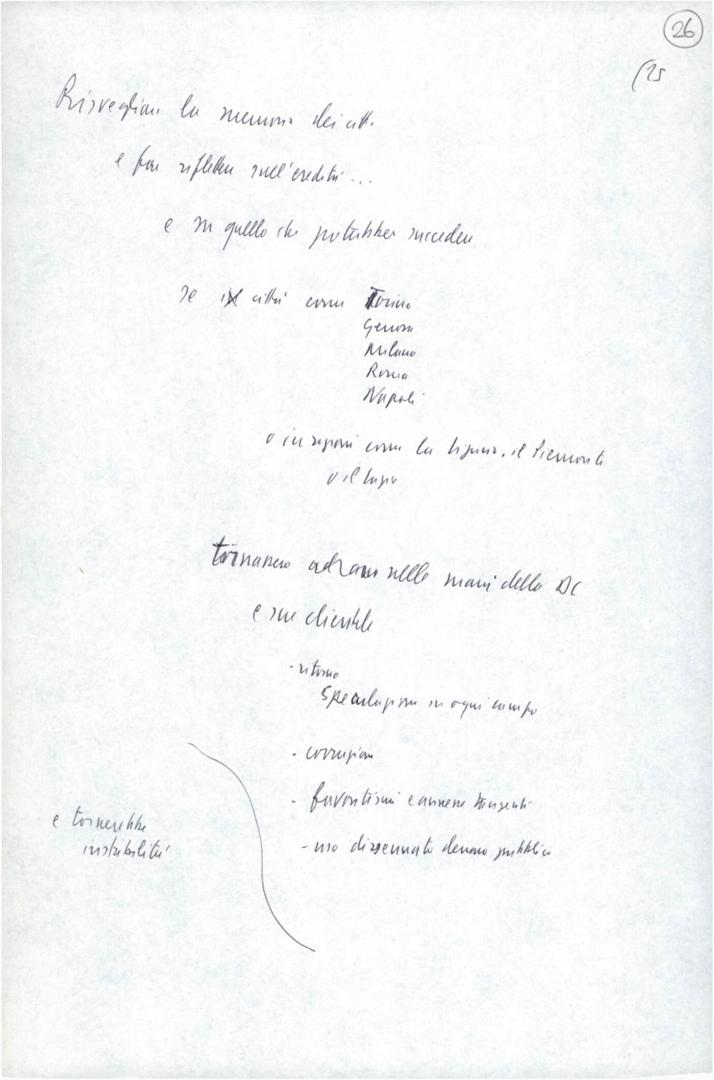 26
(25
Risvegliare la memoria dei citt.
e far riflettere sull'eredità...
e su quello che potrebbe succedere
se in città come Torino
Genova
Milano
Roma
Napoli
o in regioni come la Liguria, il Piemonte
o il Lazio
tornassero ad nelle mani della DC
e sue clientele
- ritorno
Speculazione in ogni campo
- corruzione
- favoritismi e tangenti
- uso dissennato denaro pubblico
e tornerebbe
instabilità